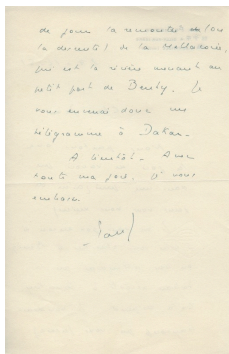 de jour la remontée et/ou
la descente de la Mellacorée,
qui est la rivière menant au
petit port de Benty. Je
vous enverrai donc un
télégramme à Dakar.
A bientôt. Avec
toute ma joie, je vous
embrasse.